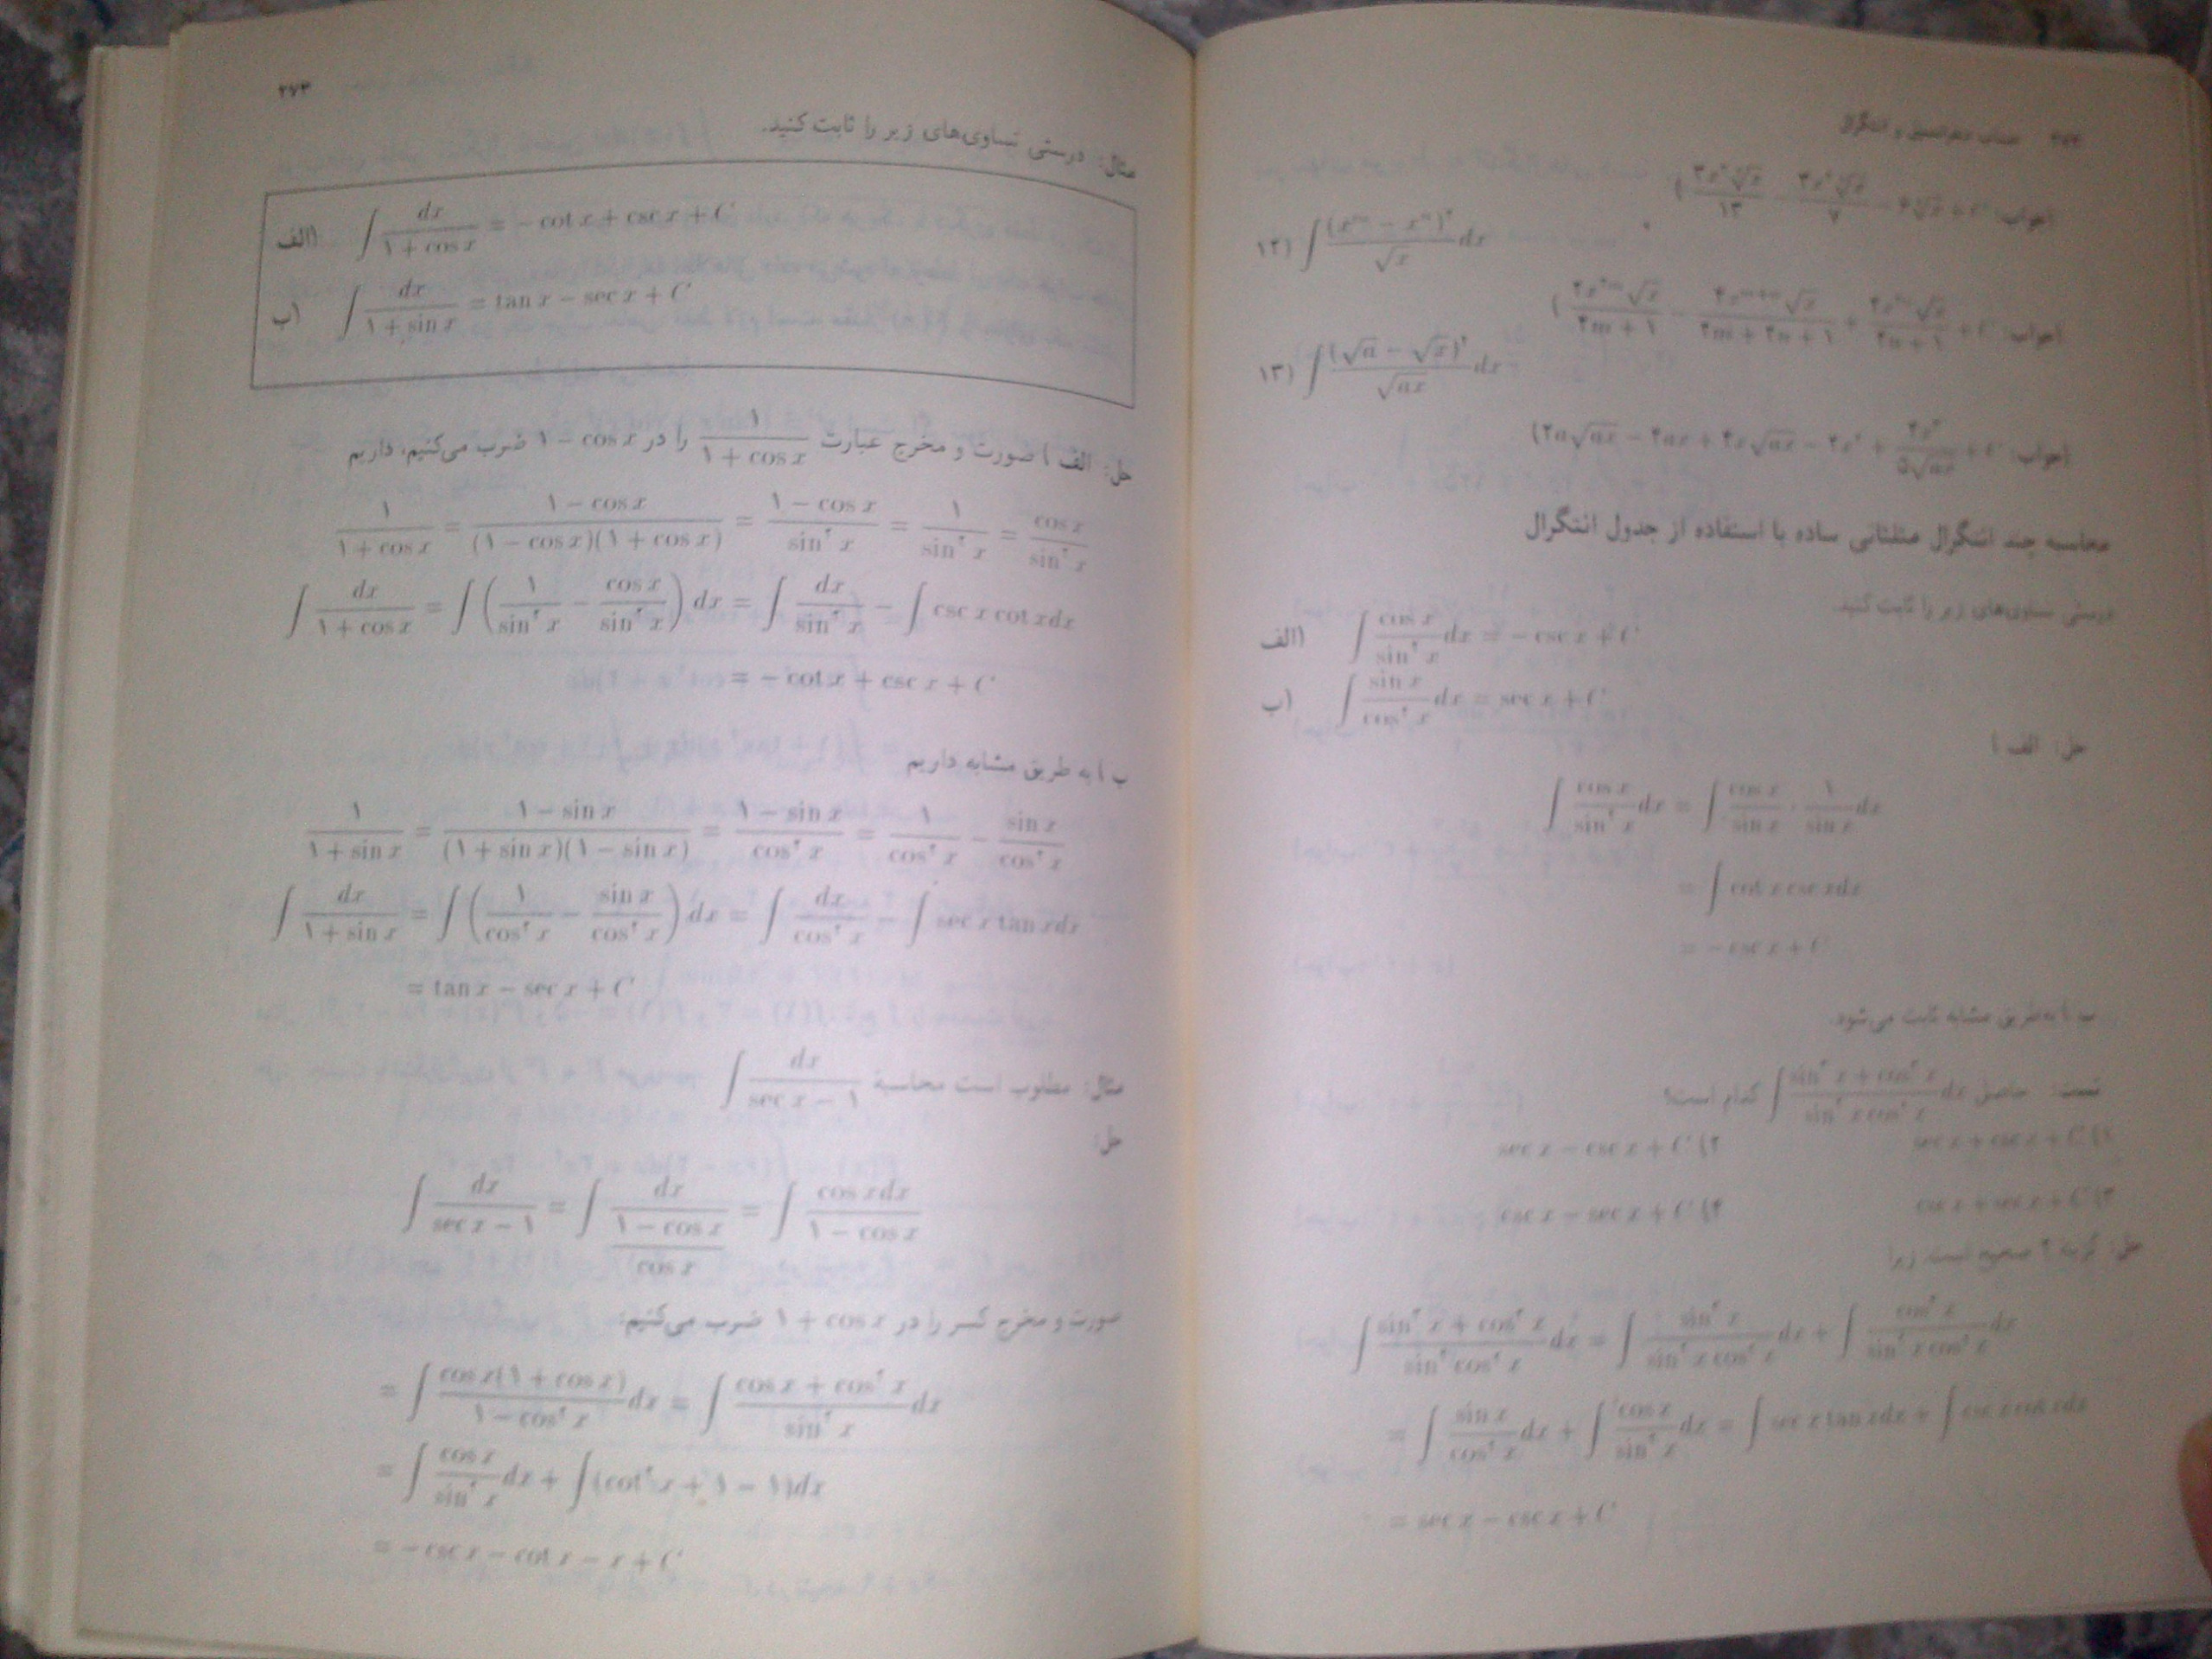 ۲۷۲ حساب دیفرانسیل و انتگرال
۱۲) ∫ (xᵐ − xⁿ)² / √x dx
جواب:
۱۳) ∫ (√a − √x)⁴ / √ax dx
(۲a√ax − ۴ax + ۴x√ax − ۲x² + ۲x³ / ۵√ax + C جواب:
محاسبه چند انتگرال مثلثاتی ساده با استفاده از جدول انتگرال
درستی تساوی‌های زیر را ثابت کنید.
الف) ∫ cos x / sin² x dx = − csc x + C
ب) ∫ sin x / cos² x dx = sec x + C
حل: الف)
∫ cos x / sin² x dx = ∫ cos x / sin x · ۱ / sin x dx
= ∫ cot x csc xdx
= − csc x + C
ب) به‌طریق مشابه ثابت می‌شود.
تست: حاصل ∫ sin³ x + cos³ x / sin² x cos² x dx کدام است؟
sec x + csc x + C (۱ sec x − csc x + C (۲
csc x − sec x + C (۴
حل: گزینه ۲ صحیح است زیرا
∫ sin³ x + cos³ x / sin² cos² x dx = ∫ sin³ x / sin² x cos² x dx + ∫ cos³ x / sin² x cos² x dx
= ∫ sin x / cos² x dx + ∫ cos x / sin² x dx = ∫ sec x tan xdx + ∫ csc x cot xdx
= sec x − csc x + C
۲۷۳
مثال: درستی تساوی‌های زیر را ثابت کنید.
الف) ∫ dx / ۱ + cos x = − cot x + csc x + C
ب) ∫ dx / ۱ + sin x = tan x − sec x + C
حل: الف) صورت و مخرج عبارت ۱ / ۱ + cos x را در ۱ − cos x ضرب می‌کنیم، داریم
۱ / ۱ + cos x = ۱ − cos x / (۱ − cos x)(۱ + cos x) = ۱ − cos x / sin² x = ۱ / sin² x = cos x / sin² x
∫ dx / ۱ + cos x = ∫ (۱ / sin² x − cos x / sin² x) dx = ∫ dx / sin² x − ∫ csc x cot xdx
= − cot x + csc x + C
ب) به طریق مشابه داریم
۱ / ۱ + sin x = ۱ − sin x / (۱ + sin x)(۱ − sin x) = ۱ − sin x / cos² x = ۱ / cos² x − sin x / cos² x
∫ dx / ۱ + sin x = ∫ (۱ / cos² x − sin x / cos² x) dx = ∫ dx / cos² x − ∫ sec x tan xdx
= tan x − sec x + C
مثال: مطلوب است محاسبهٔ ∫ dx / sec x − ۱
حل:
∫ dx / sec x − ۱ = ∫ dx / ۱ − cos x / cos x = ∫ cos xdx / ۱ − cos x
صورت و مخرج کسر را در ۱ + cos x ضرب می‌کنیم:
= ∫ cos x(۱ + cos x) / ۱ − cos² x dx = ∫ cos x + cos² x / sin² x dx
= ∫ cos x / sin² x dx + ∫ (cot² x + ۱ − ۱)dx
= − csc x − cot x − x + C